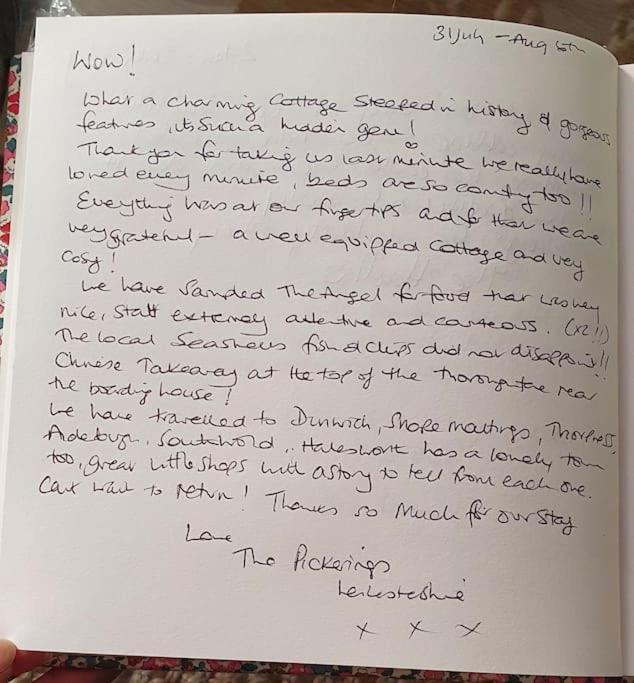 31 July - Aug 6th
Wow!
What a charming Cottage Steeped in history & gorgeous
features, its such a hidden gem!
Thank you for taking us last minute we really have
loved every minute, beds are so comfy too!!
Everything was at our fingertips and for that we are
very grateful - a well equipped cottage and very
cosy!
We have sampled The Angel for food that was very
nice, Staff extremely attentive and courteous. (x2!!)
The local Seashells fish & chips did not disappoint!!
Chinese Takeaway at the top of the thoroughfare near
the boarding house!
We have travelled to Dunwich, Snape maltings, Thorpness,
Aldeburgh, Southwold, Halesworth has a lovely town
too, great little shops with a story to tell from each one.
Cant wait to return! Thanks so much for our stay
Love
The Pickerings
Leicestershire
x x x